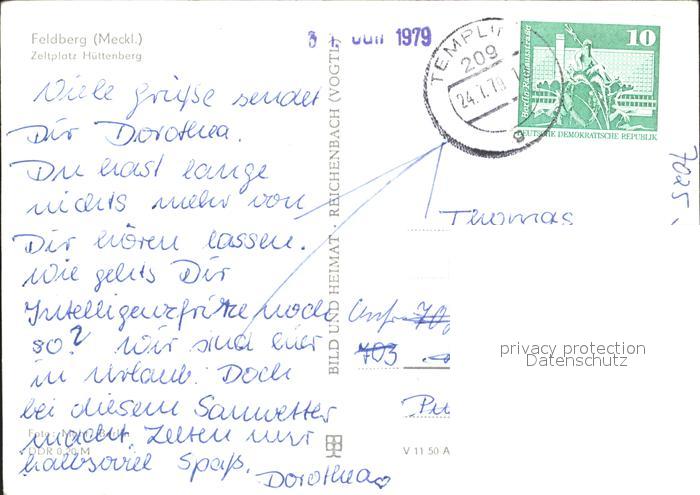 Feldberg (Meckl.)
Zeltplatz Hüttenberg
Viele Grüße sendet
Dir Dorothea.
Du hast lange
nichts mehr von
Dir hören lassen.
Wie gehts Dir
Intelligenzfritze noch
so? Wir sind hier
in Urlaub. Doch
bei diesem Sauwetter
macht Zelten nur
halbsoviel Spaß.
Dorothea
DDR 0,20 M
BILD UND HEIMAT · REICHENBACH (VOGTL)
V 11 50 A
1979
TEMPLIN
209
24.7.79
10
DEUTSCHE DEMOKRATISCHE REPUBLIK
7025
Thomas
703
privacy protection
Datenschutz